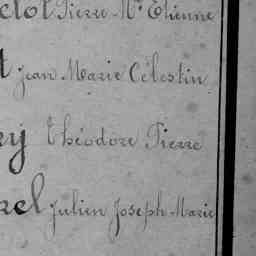 clot Pierre Me Etienne
t Jean Marie Célestin
ey Théodore Pierre
rel Julien Joseph Marie